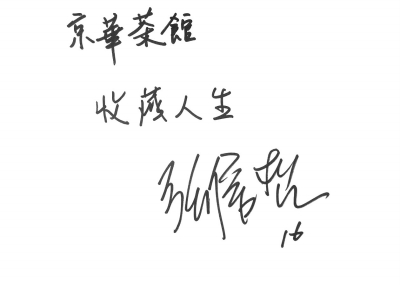 京華茶館
收藏人生
张信哲
16